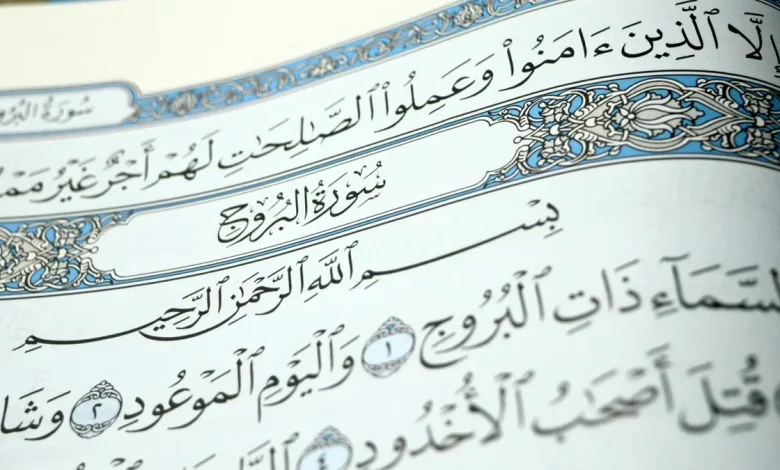 سُورَةُ البُرُوجِ
إِلَّا ٱلَّذِينَ ءَامَنُوا۟ وَعَمِلُوا۟ ٱلصَّـٰلِحَـٰتِ لَهُمْ أَجْرٌ غَيْرُ
سُورَةُ البُرُوجِ
بِسْمِ ٱللَّهِ ٱلرَّحْمَـٰنِ ٱلرَّحِيمِ
ٱلسَّمَآءِ ذَاتِ ٱلْبُرُوجِ ١ وَٱلْيَوْمِ ٱلْمَوْعُودِ ٢
قُتِلَ أَصْحَـٰبُ ٱلْأُخْدُودِ ٤